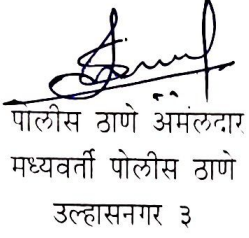 पोलीस ठाणे अमंलदार
मध्यवर्ती पोलीस ठाणे
उल्हासनगर ३